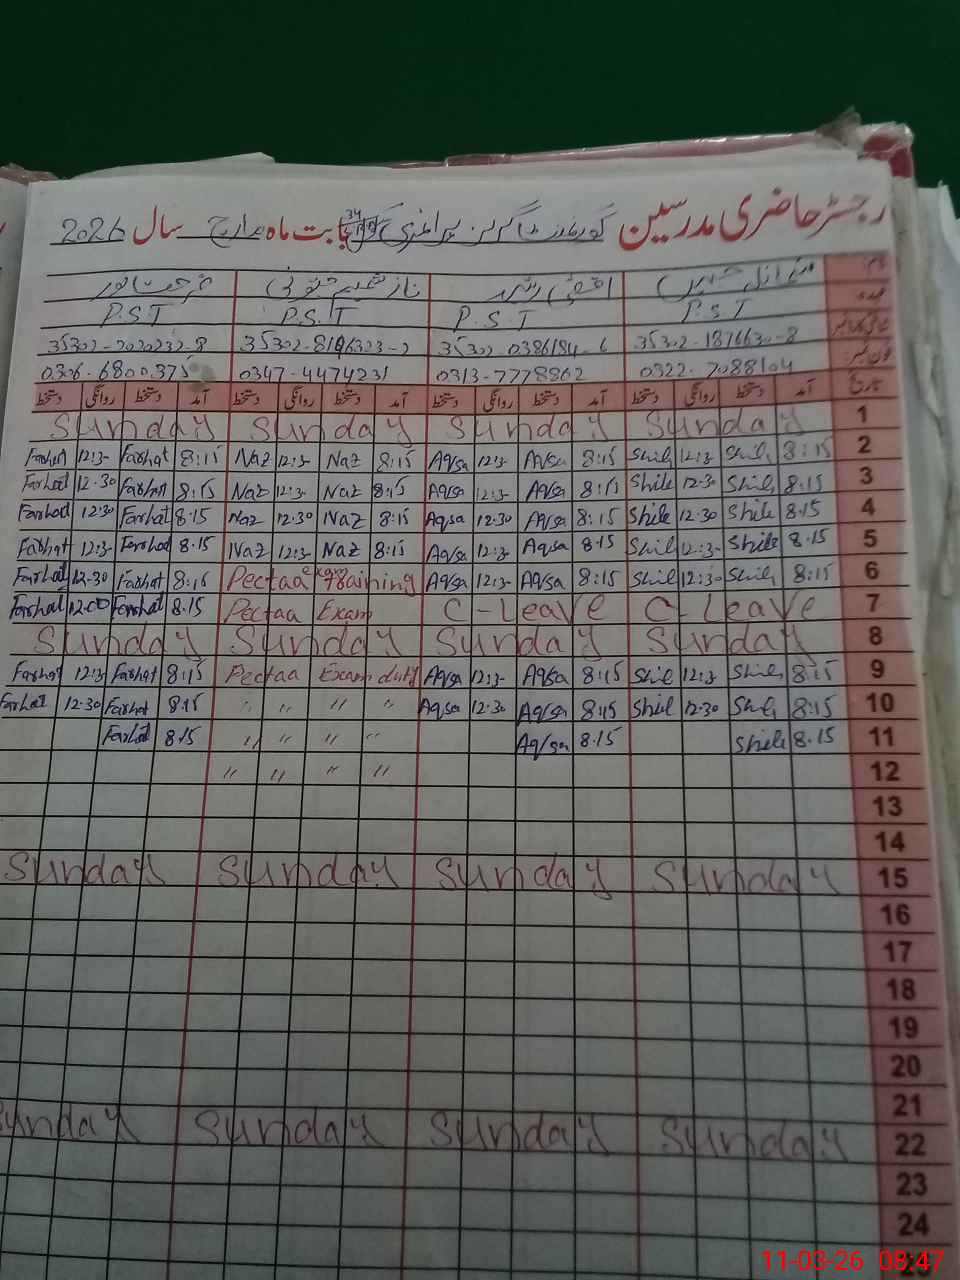 رجسٹر حاضری مدرسین گورنمنٹ گرلز پرائمری بابت ماہ مارچ سال 2026
نام
عہدہ P.S.T P.S.T P.S.T P.S.T
35302-1876630-8 35302-0386184-6 35302-8196323-2 35302-2020232-8
فون نمبر 0322-7088104 0313-7778862 0347-4474231 0306-6800375
تاریخ آمد دستخط روانگی دستخط آمد دستخط روانگی دستخط آمد دستخط روانگی دستخط آمد دستخط روانگی دستخط
Sunday Sunday Sunday Sunday 1
Farhat 12:3- Farhat 8:15 Naz 12:3- Naz 8:15 Aqsa 12:3- Aqsa 8:15 12:3- 8:15 2
Farhat 12.30 Farhat 8:15 Naz 12:3- Naz 8:15 Aqsa 12:3- Aqsa 8:15 12.30 8.15 3
Farhat 12.30 Farhat 8.15 Naz 12.30 Naz 8:15 Aqsa 12.30 Aqsa 8:15 12.30 8.15 4
Farhat 12:3- Farhat 8.15 Naz 12:3- Naz 8:15 Aqsa 12:3- Aqsa 8.15 12:3- 8.15 5
Farhat 12.30 Farhat 8:15 Pectaa exam Training Aqsa 12:3- Aqsa 8:15 12:30 8:15 6
Farhat 12.00 Farhat 8.15 Pectaa Exam C-Leave C-Leave 7
Sunday Sunday Sunday Sunday 8
Farhat 12:3- Farhat 8:15 Pectaa Exam duty Aqsa 12:3- Aqsa 8:15 12:3- 8:15 9
Farhat 12.30 Farhat 8.15 " " " " Aqsa 12.30 Aqsa 8:15 12.30 8:15 10
Farhat 8.15 " " " " Aqsa 8.15 8.15 11
" " " " 12
13
14
Sunday Sunday Sunday Sunday 15
16
17
18
19
20
21
Sunday Sunday Sunday Sunday 22
23
24
11-03-26 08:47